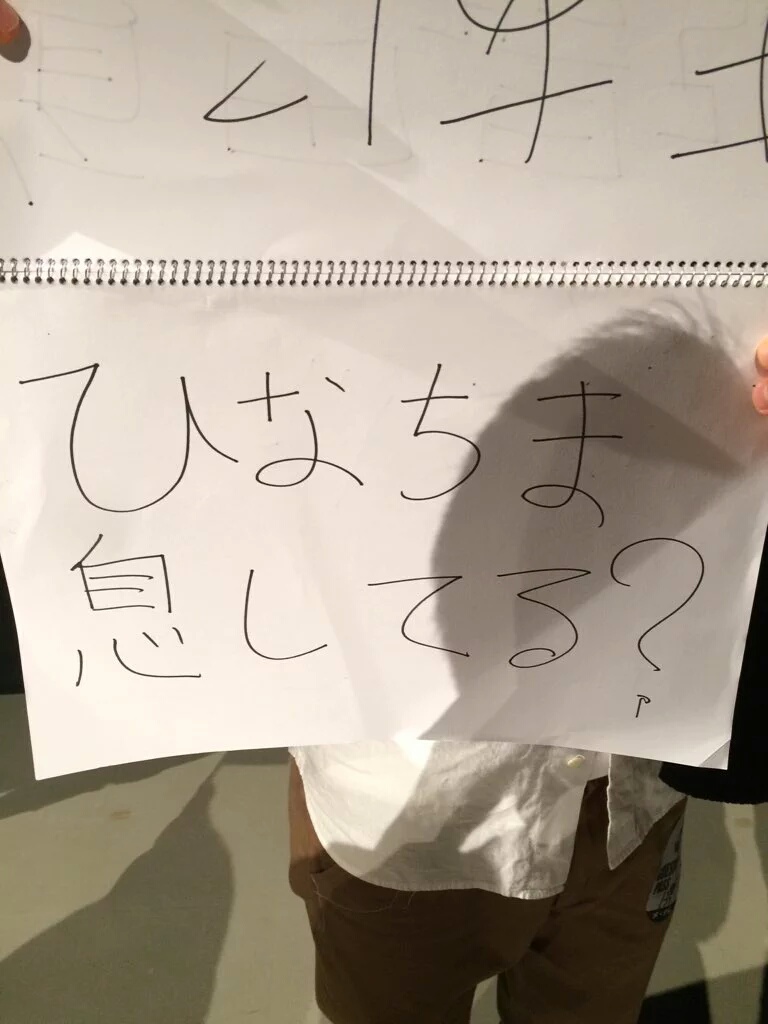 ひなちま
息してる?